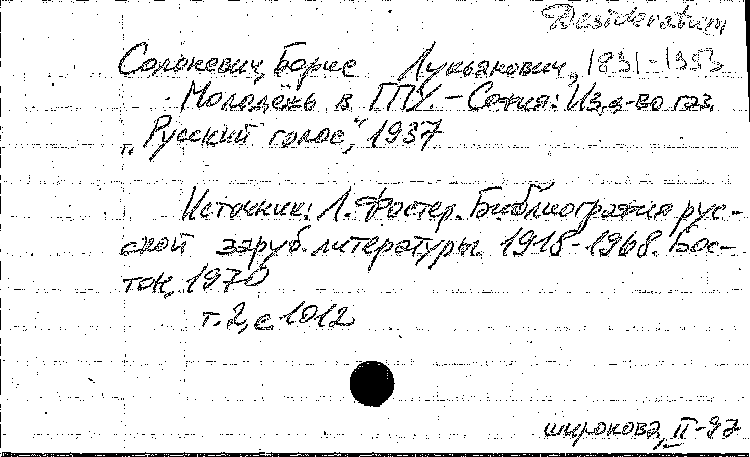 Desideratum
Солоневич, Борис Лукьянович, 1891-1953
Молодёжь в ГПУ. – София: Изд-во газ.
„Русский голос", 1937
Источник: Л. Фостер. Библиография рус-
ской заруб. литературы. 1918-1968. Бос-
тон, 1970
т. 2, с 1012
широкова, II-97